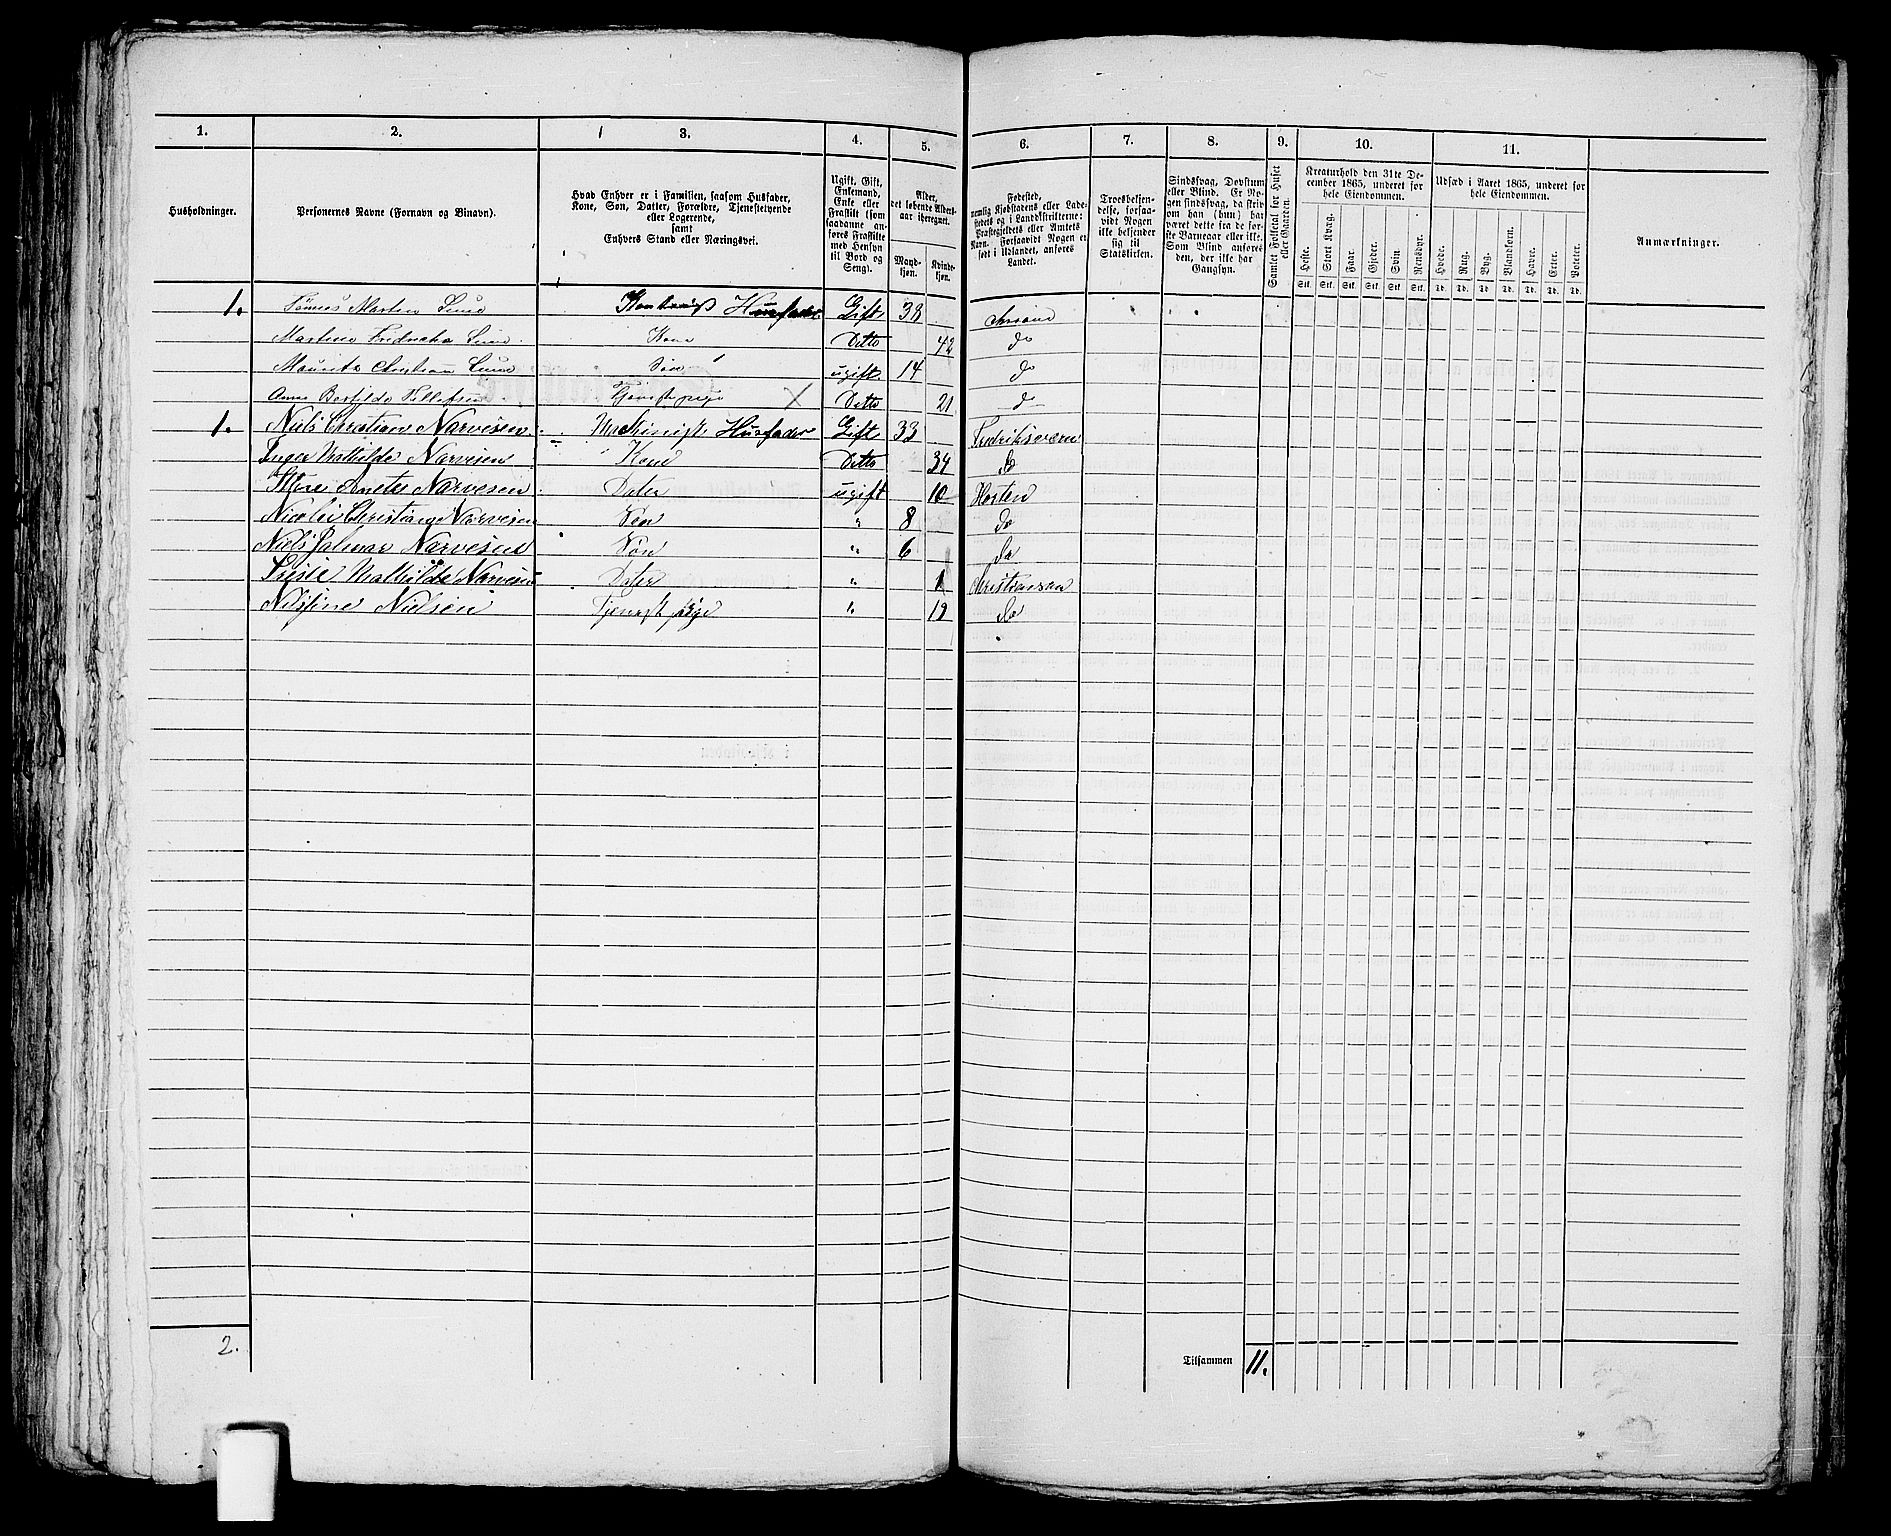 1. 2. 3. 4. 5. 6. 7. 8. 9. 10. 11.
Husholdninger.
Personernes Navne (Fornavn og Binavn).
Hvad Enhver er i Familien, saasom Husfader,
Kone, Søn, Datter, Forældre, Tjenestetyende
eller Logerende,
samt
Enhvers Stand eller Næringsvei.
Ugift, Gift,
Enkemand,
Enke eller
Fraskilt (som
saadanne an-
føres Fraskilte
med Hensyn
til Bord og
Seng).
Alder,
det løbende Alders-
aar iberegnet.
Mand-
kjøn.
Kvinde-
kjøn.
Fødested,
nemlig Kjøbstadens eller Lade-
stedets og i Landdistrikterne:
Præstegjeldets eller Amtets
Navn. Forsaavidt Nogen er
født i Udlandet, anføres
Landet.
Troesbekjen-
delse, forsaa-
vidt Nogen
ikke bekjender
sig til
Statskirken.
Sindssvag, Døvstum
eller Blind. Er No-
gen sindssvag, da skriv
om han (hun) har
været dette fra de før-
ste Barneaar eller ikke.
Som Blind anføres
den, der ikke har
Gangsyn.
Samlet Folketal for Huset
eller Gaarden.
Kreaturhold den 31te De-
cember 1865, anføres for
hele Eiendommen.
Heste. Stort Kvæg. Faar. Gjeder. Svin. Rensdyr.
Stk. Stk. Stk. Stk. Stk. Stk.
Udsæd i Aaret 1865, anføres for
hele Eiendommen.
Hvede. Rug. Byg. Blandkorn. Havre. Erter. Poteter.
Td. Td. Td. Td. Td. Td. Td.
Anmærkninger.
1. Tønnes Marten Lund Husfader Gift 38
Martine Fridricka Lund Kone Ditto 42 do
Mauritz Christian Lund Søn ugift 14 do
Anne Tellefsen Ditto 21 d
1. Niels Christian Narvesen Maskinist Husfader Gift 33 Fredriksværn
Inger Mathilde Narvesen Kone Ditto 34 do
Anette Narvesen Dater ugift 10 Horten
Nicolai Christian Narvesen Søn " 8 do
Niels Jalmar Narvesen Søn " 6 do
Mathilde Narvesen Dater " 1 Christiansan
Nilsine Nielsen Tjenestpige " 19 do
2.
Tilsammen 11.